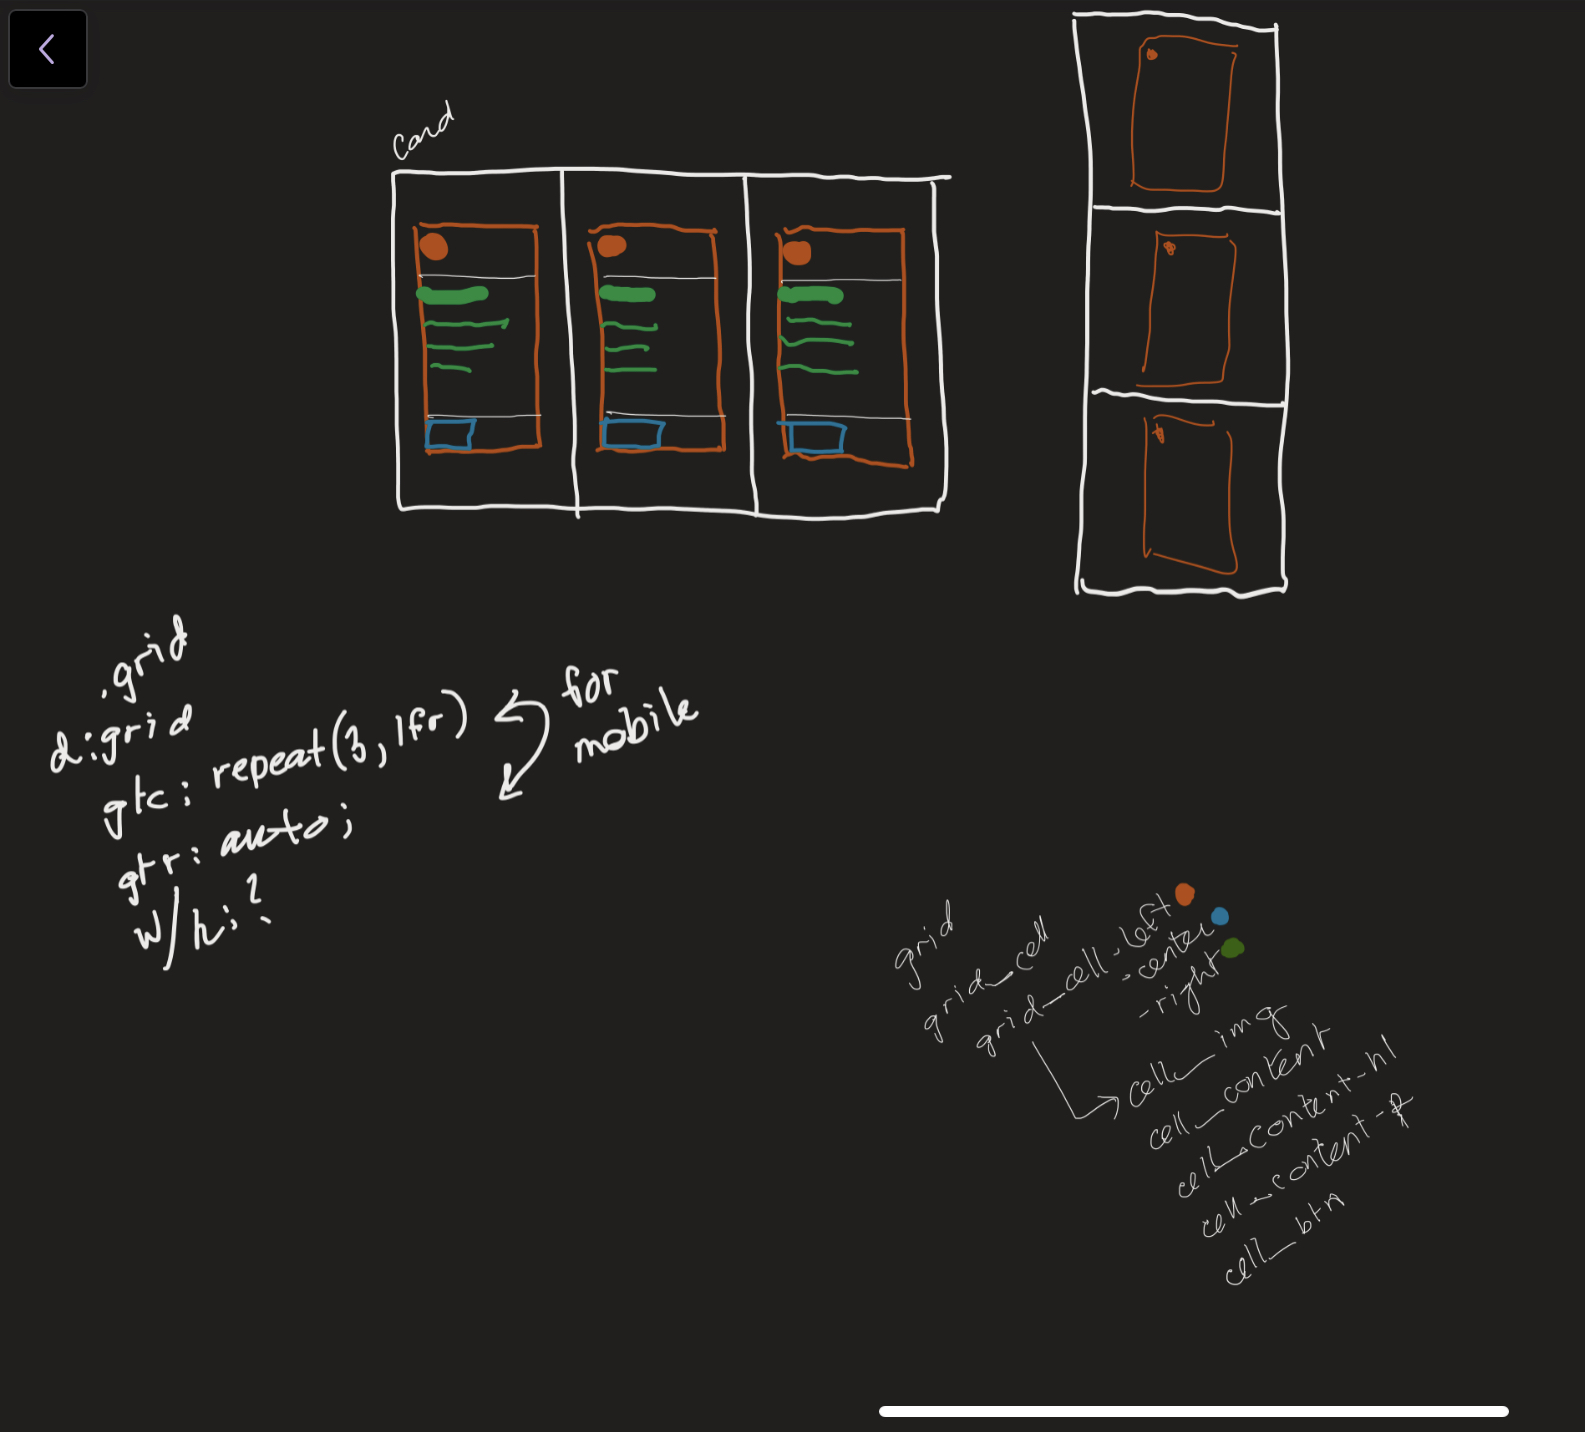 Card
.grid
d:grid
gtc: repeat(3, 1fr)
gtr: auto;
w/h: ?
for
mobile
grid
grid_cell
grid_cell-left
-center
-right
cell_img
cell_content
cell_content-h1
cell-content-p
cell_btn